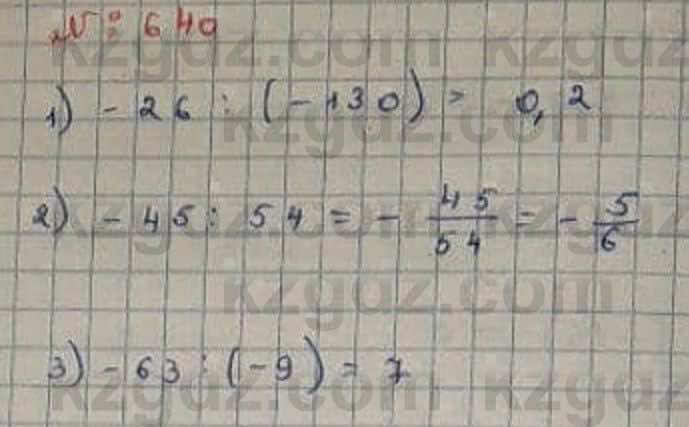 № 640
kzgdz.com kzgdz.com
1) - 26 : (-130) = 0,2
kzgdz.com
2) - 45 : 54 = - 45/54 = - 5/6
kzgdz.com
3) - 63 : (-9) = 7
kzgdz.com kzgdz.com